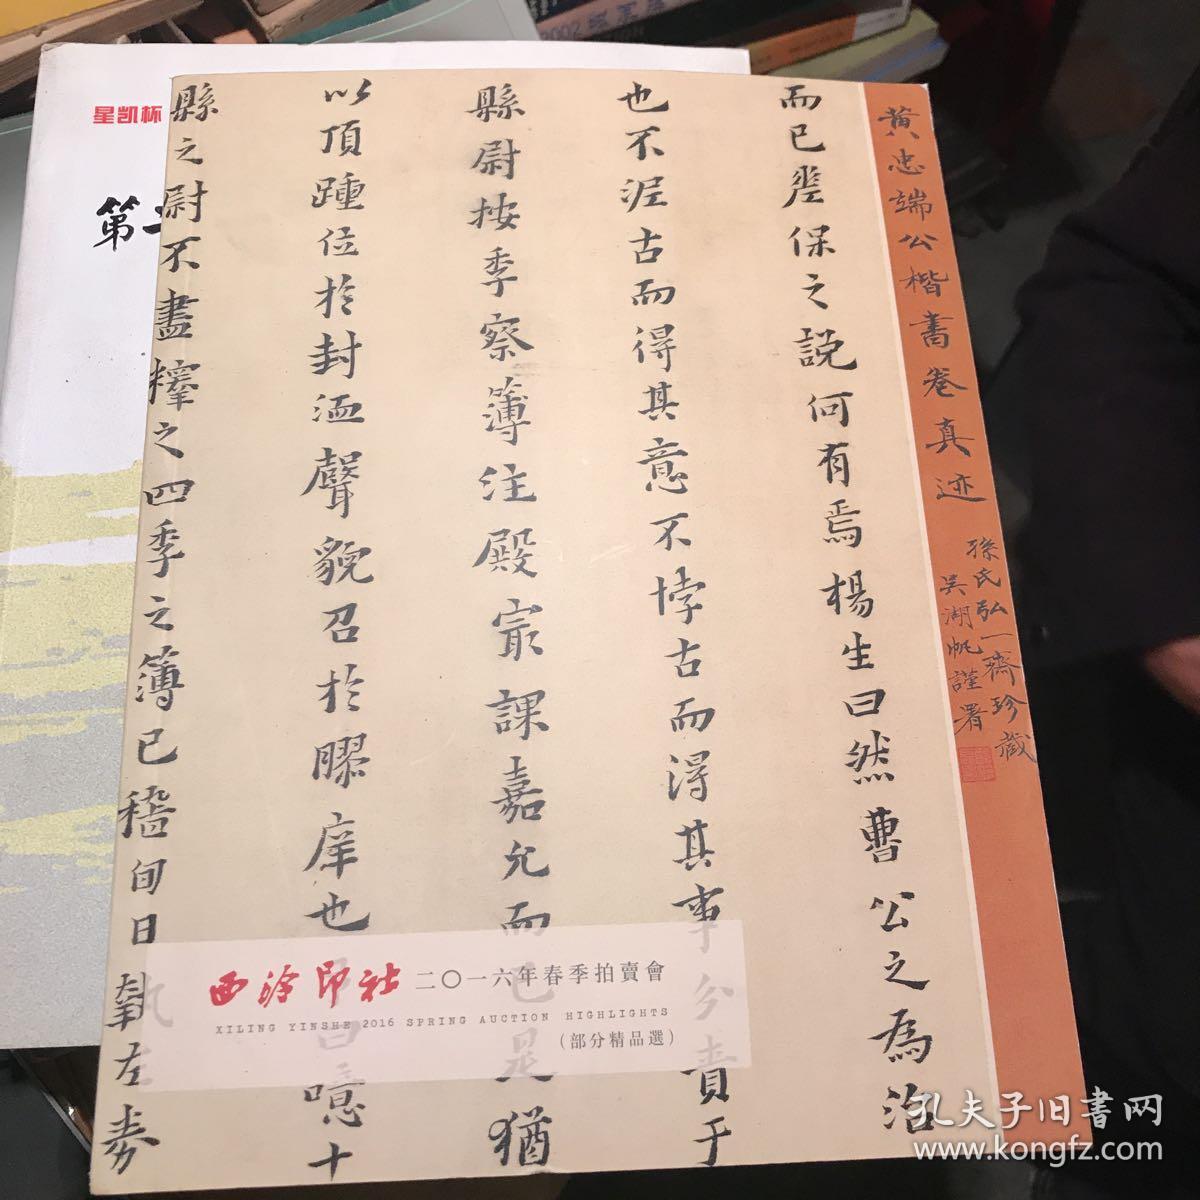 黄忠端公楷書卷真迹
孫氏弘一齋珍藏
吴湖帆謹署
而已聖保之說何有焉楊生曰然曹公之為治
也不泥古而得其意不悖古而得其事分責于
縣尉按季察簿注殿最課嘉允而已是猶
以頂踵位於封洫聲貌召於膠庠也
曰噫十
縣之尉不盡擇之四季之簿已稽旬日執左券
西泠印社 二〇一六年春季拍賣會
XILING YINSHE 2016 SPRING AUCTION HIGHLIGHTS
(部分精品選)
星凯杯
第二
2002
孔夫子旧書网
www.kongfz.com